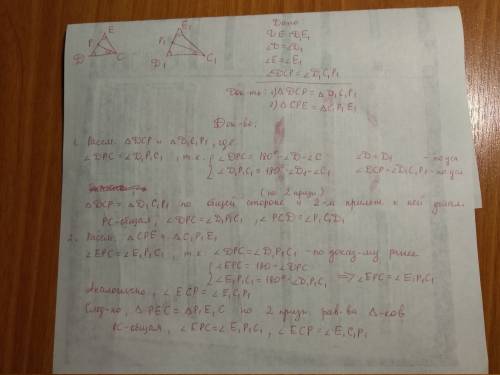 Дано
DE=D₁E₁
∠D=∠D₁
∠E=∠E₁
∠DCP=∠D₁C₁P₁
Док-ть: 1) △DCP=△D₁C₁P₁
2) △CPE=△C₁P₁E₁
E
P
D
C
E₁
P₁
D₁
C₁
Док-во:
1. Рассм. △DCP и △D₁C₁P₁, где
∠DPC=∠D₁P₁C₁, т.к. { ∠DPC=180°-∠D-∠C ∠D=∠D₁ - по усл
∠D₁P₁C₁=180°-∠D₁-∠C₁ ∠DCP=∠D₁C₁P₁ - по усл
(по 2 призн.)
△DCP=△D₁C₁P₁ по общей стороне и 2-м прилеж. к ней углам.
PC-общая, ∠DPC=∠D₁P₁C₁, ∠PCD=∠P₁C₁D₁
2. Рассм. △CPE и △C₁P₁E₁
∠EPC=∠E₁P₁C₁, т.к. ∠DPC=∠D₁P₁C₁ - по доказ-му ранее
{ ∠EPC=180-∠DPC
∠E₁P₁C₁=180°-∠D₁P₁C₁ => ∠EPC=∠E₁P₁C₁
Аналогично, ∠ECP=∠E₁C₁P₁
След-но, △PEC=△P₁E₁C по 2 призн. рав-ва △-ков
PC-общая, ∠EPC=∠E₁P₁C₁, ∠ECP=∠E₁C₁P₁